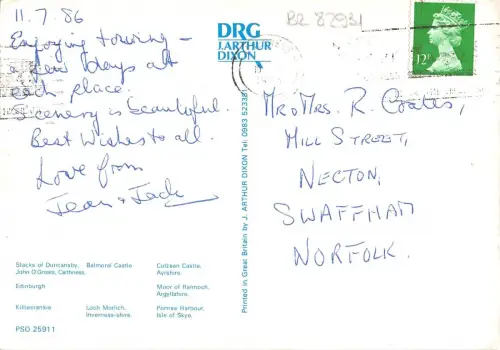 11.7.86
Enjoying touring –
a few days at
each place.
Scenery is beautiful.
Best Wishes to all.
Love from
Jean & Jack
DRG
J. ARTHUR
DIXON
BR 82931
12P
Mr & Mrs. R. Coates,
MILL STREET,
NECTON,
SWAFFHAM
NORFOLK.
Printed in Great Britain by J. ARTHUR DIXON Tel: 0983 523381
Stacks of Duncansby, Balmoral Castle Culzean Castle,
John O'Groats, Caithness. Ayrshire.
Edinburgh Moor of Rannoch,
Argyllshire.
Killiecrankie Loch Morlich, Portree Harbour,
Inverness-shire. Isle of Skye.
PSO 25911